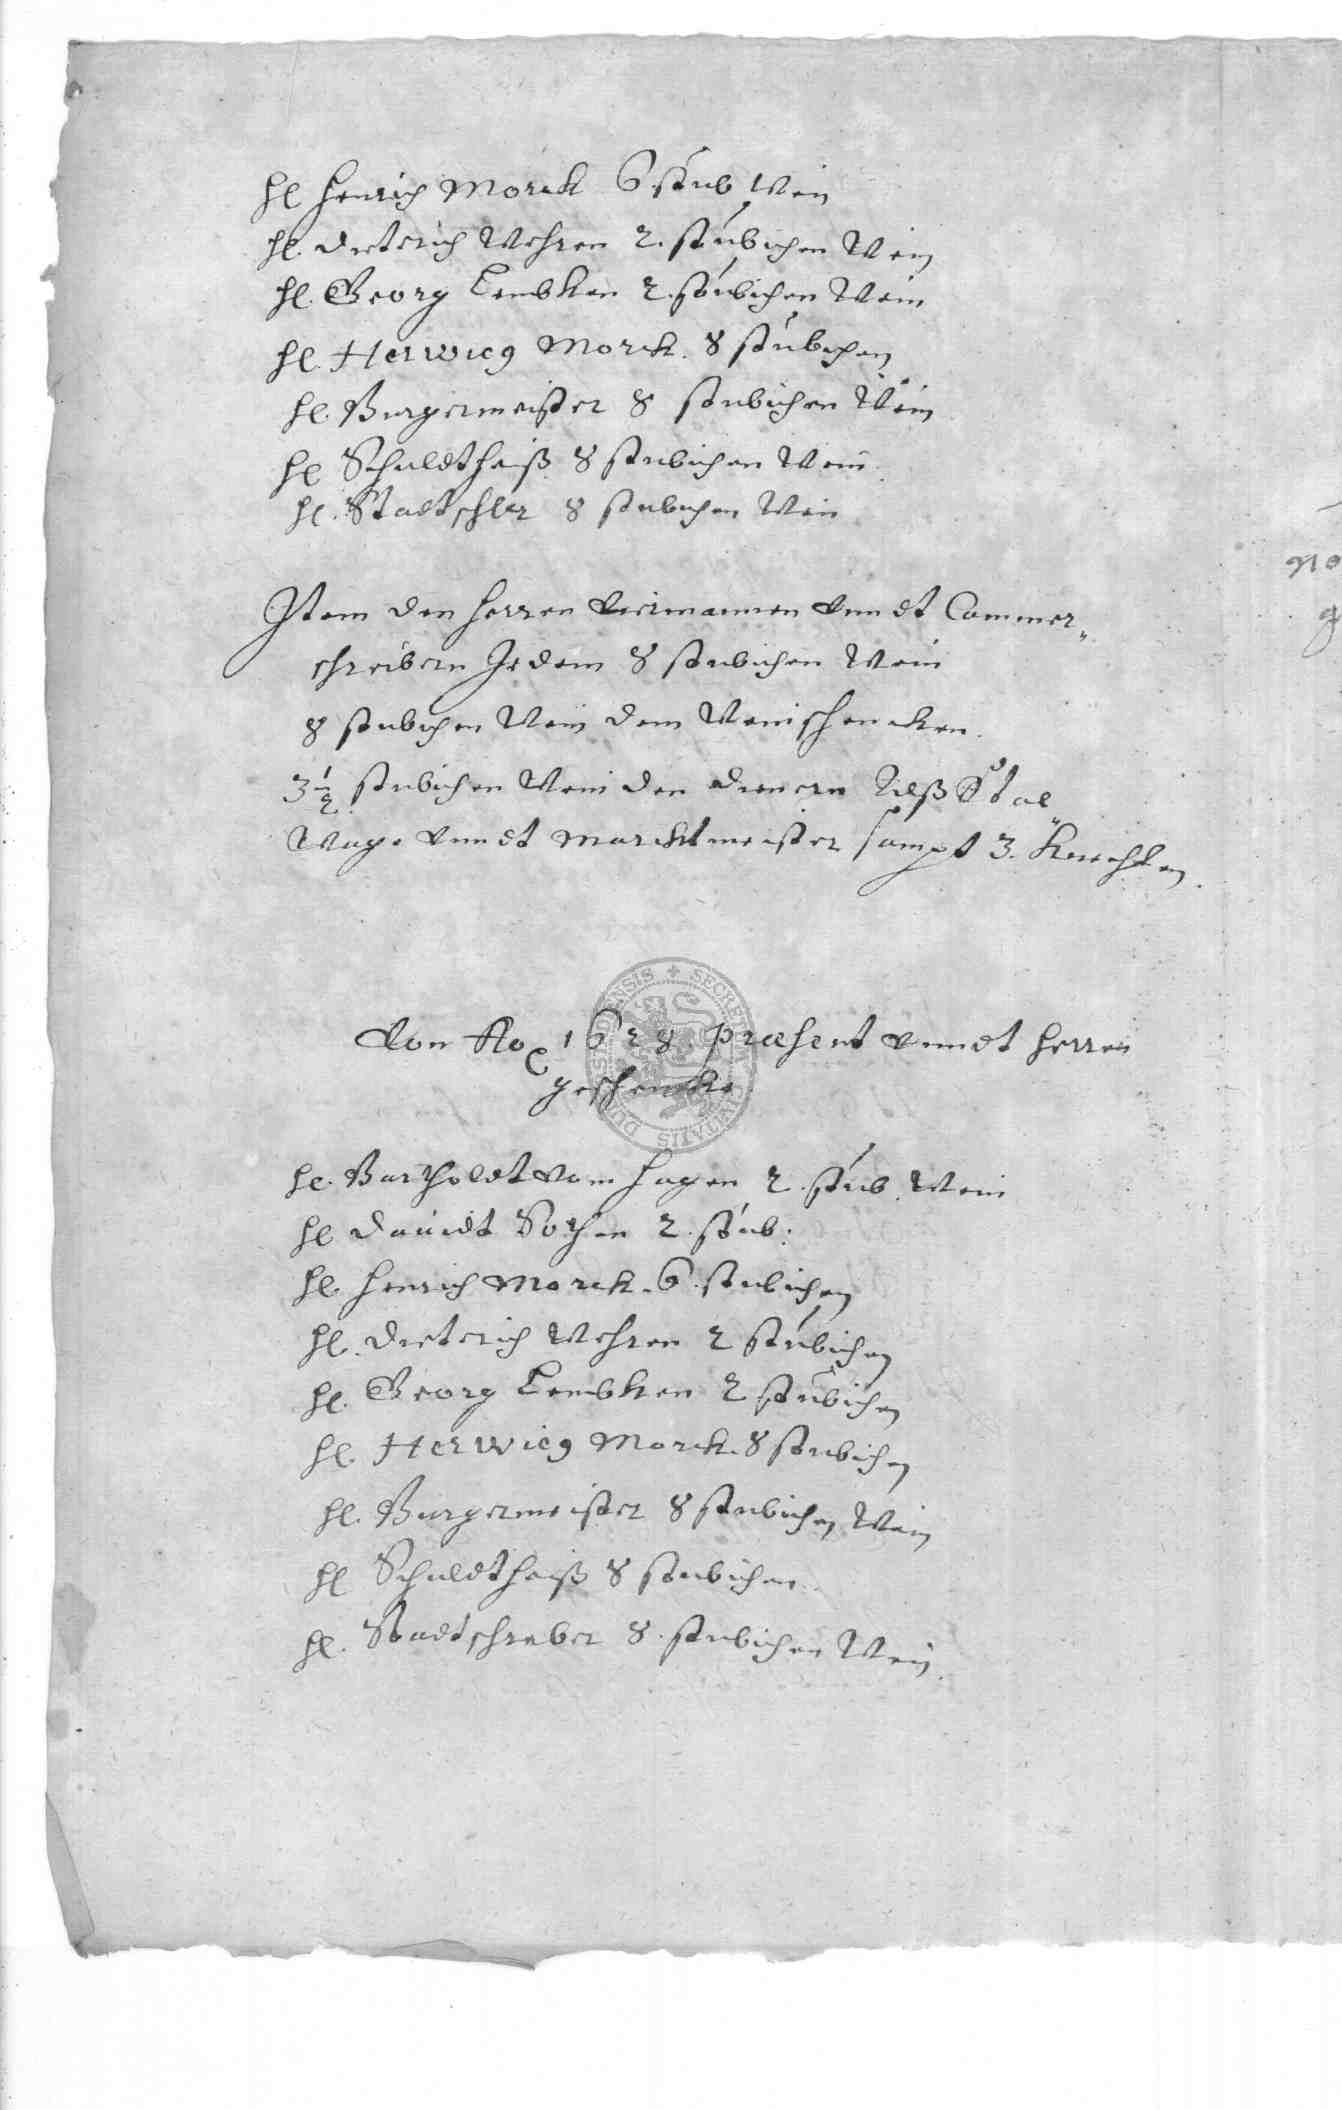 Hl Henrich Morck 6 stüb Wein
Hl. Dieterich Wehren 2. stübichen Wein
Hl. Georg Lembken 2. stübichen Wein
Hl. Herwieg Morck. 8 stübichen
Hl. Burgermeister 8 stubichen Wein
Hl Schuldtheiß 8 stubichen Wein.
Hl. Stadtschr 8 stubichen Wein
Item den Herren Viermannen vnndt Cammer„
schreibern Jedem 8 stubichen Wein
8 stubichen Wein dem Weinschencken.
3 1/2 stubichen Wein den dienern
Wage vnndt Marcktmeister sampt 3. Knechten.
Von Ao 1628. præsent vnndt Herren
geschencke.
Hl. Bartholdt vom Hagen 2. stüb. Wein
Hl Dauidt Sothen 2. stüb.
Hl. Henrich Morck. 6. stubichen
Hl. Dieterich Wehren 2 stübichen
Hl. Georg Lembken 2 stübichen
Hl. Herwieg Morck. 8 stubichen
Hl. Burgermeister 8 stubichen Wein
Hl Schuldtheiß 8 stubichen.
Hl. Stadtschreiber 8. stubichen Wein.